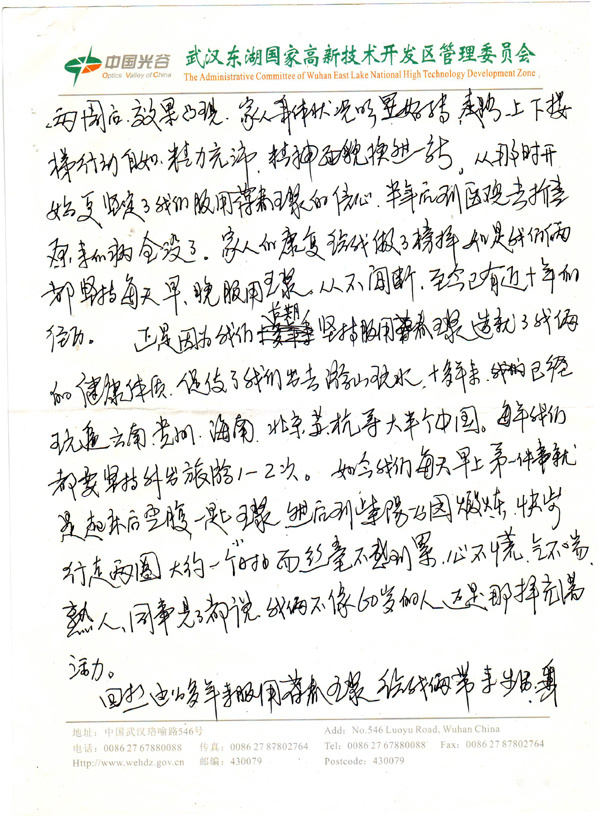 中国光谷
Optics Valley of China
武汉东湖国家高新技术开发区管理委员会
The Administrative Committee of Wuhan East Lake National High Technology Development Zone
两周后效果凸现.家人身体状况明显好转,走路上下楼
梯行动自如.精力充沛.精神面貌焕然一新。从那时开
始更坚定了我们服用葆春王浆的信心.半年后到医院去折查
原来的病全没了。家人的康复给我做了榜样如是我们俩
都坚持每天早、晚服用王浆.从不间断.至今已有近十年的
经历。正是因为我们长期坚持服用葆春王浆造就了我俩
的健康体质.促使了我们出去游山玩水.十多年来.我们已经
玩遍云南.贵州.海南.北京.苏杭等大半个中国。每年我们
都要坚持外出旅游1-2次。如今我们每天早上第一件事就
是起床后空腹一匙王浆.然后到 公园煅炼.快步
行走两圈大约一个小时而丝毫不感到累.心不慌.气不喘.
熟人、同事见了都说.我俩不像60岁的人还是那样充满
活力。
回想这十多年来服用葆春王浆给我俩带来
地址:中国武汉珞喻路546号
电话:0086 27 67880088 传真:0086 27 87802764
Http://www.wehdz.gov.cn 邮编:430079
Add: No.546 Luoyu Road, Wuhan China
Tel: 0086 27 67880088 Fax: 0086 27 87802764
Postcode: 430079